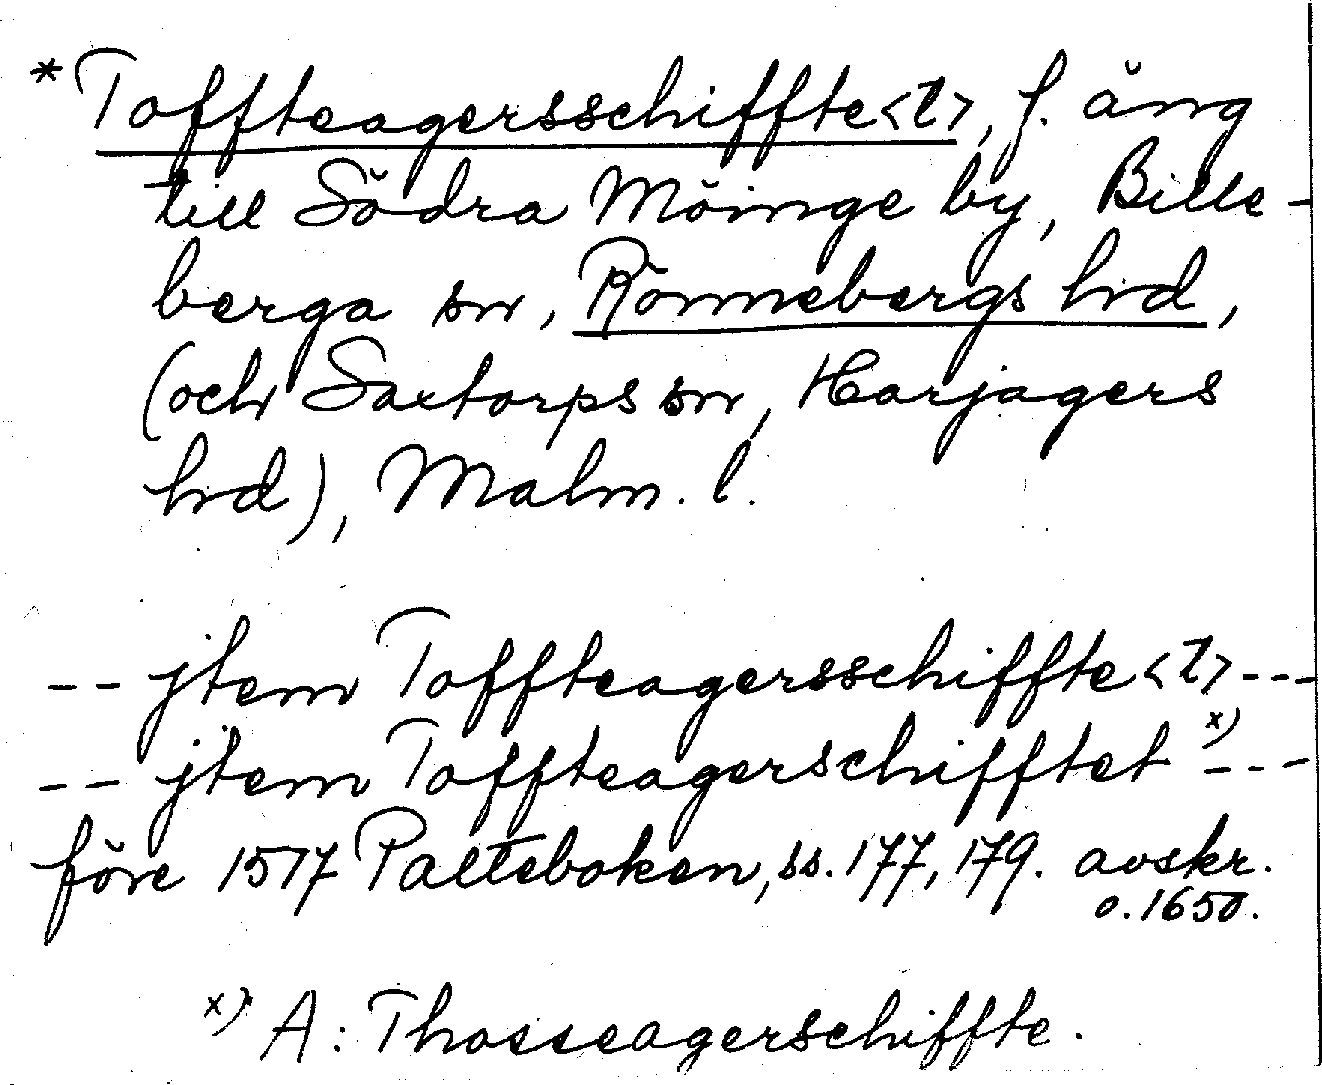 *Toffteagersschiffte<t>, f. äng
till Södra Möinge by, Bille-
berga sn, Rönnebergs hrd,
(och Saxtorps sn, Harjagers
hrd), Malm. l.
-- jtem Toffteagersschiffte<t>---
-- jtem Toffteagerschifftet x) ---
före 1517 Palteboken, ss. 177, 179. avskr.
o. 1650.
x) A: Thosseagerschiffte.